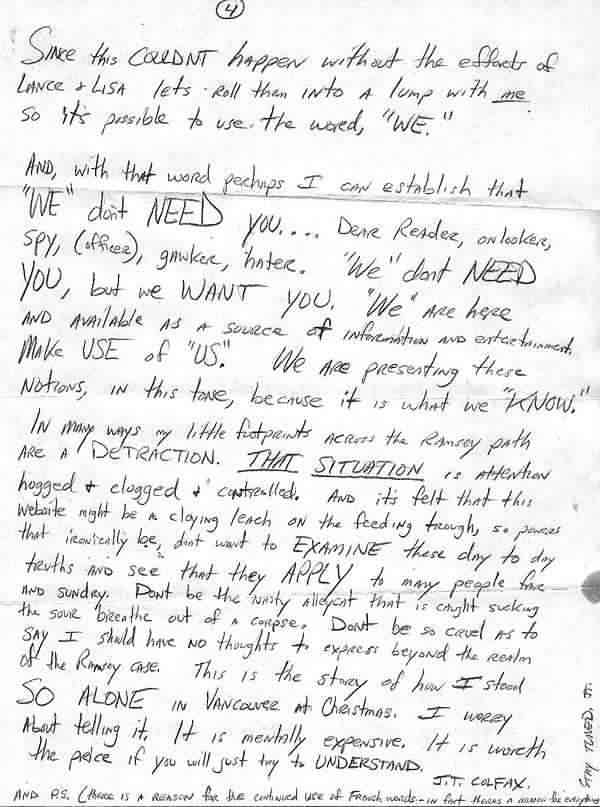 4
SINCE this COULDNT happen without the efforts of
LANCE & LISA lets roll them into A lump with me
so it's possible to use the word, "WE."
AND, with that word perhaps I can establish that
"WE" don't NEED YOU.... DEAR Reader, onlooker,
SPY, (officer), gawker, hater. "We" dont NEED
YOU, but we WANT YOU. "We" ARE here
AND AVAILABLE AS A SOURCE of INFORMATION AND entertainment.
MAKE USE of "US." We ARE presenting these
NOTIONS, IN this tone, because it is what we "KNOW."
IN MANY WAYS my little footprints ACROSS the RAMSEY path
ARE A DETRACTION. THAT SITUATION is ATTENTION
hogged & clogged & controlled. AND it's felt that this
website might be A cloying leach ON the feeding trough, so powers
that ironically be, dont want to EXAMINE these day to day
truths AND see that they APPLY to many people
AND SUNDRY. DONT be the NASTY Alleycat that is caught sucking
the sour breathe out of A corpse. DONT be so cruel AS to
SAY I should have NO thoughts to express beyond the realm
of the RAMSEY CASE. This is the story of how I stood
SO ALONE IN VANCOUVER At Christmas. I worry
About telling it. It is mentally expensive. It is worth
the price if you will just try to UNDERSTAND.
J.T. COLFAX.
AND P.S. (there is A REASON for the continued use of French words - in fact theres A reason for everything
STAY TUNED.